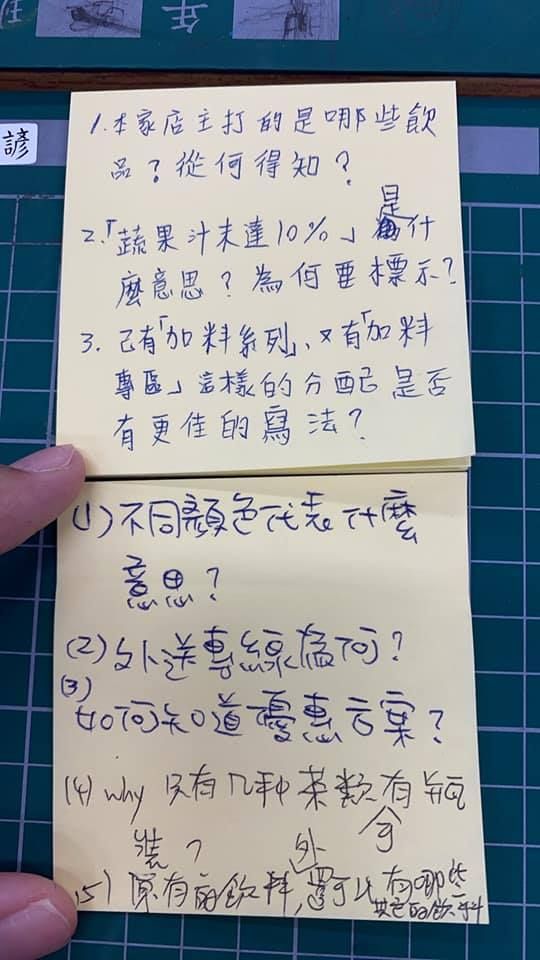 年
諺
1. 本家店主打的是哪些飲
品？從何得知？
2.「蔬果汁未達10%」是什
麼意思？為何要標示？
3. 已有「加料系列」、又有「加料
專區」這樣的分配是否
有更佳的寫法？
(1) 不同顏色代表什麼
意思？
(2) 外送專線為何？
(3)
如何知道優惠方案？
(4) why 只有几种茶類有瓶
裝？
(5) 原有的飲料，外還可以有哪些
其它的飲料